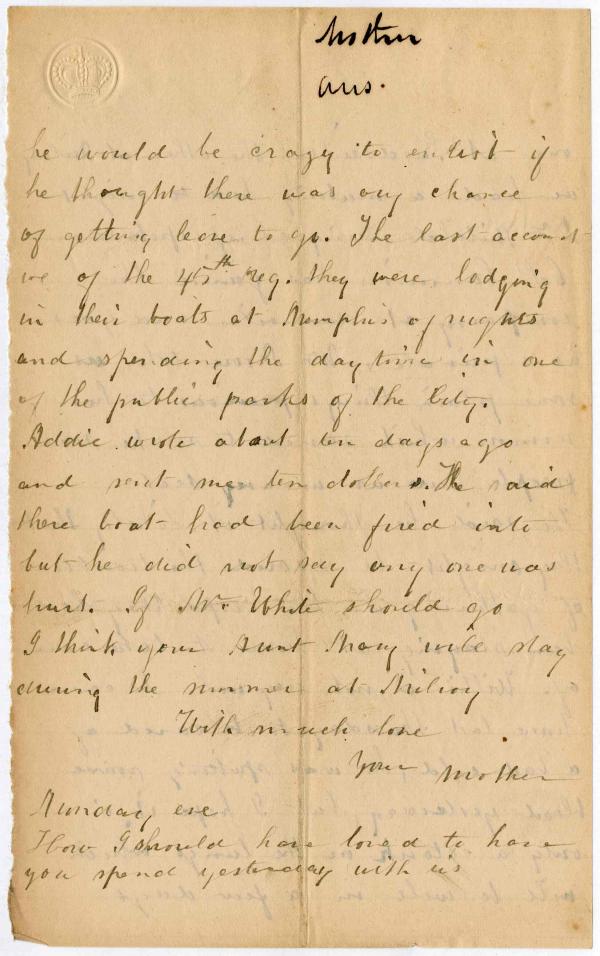 Mother
Ans.
he would be crazy to enlist if
he thought there was any chance
of getting leave to go. The last account
we of the 45th reg. they were lodging
in their boats at Memphis of nights
and spending the day time in one
of the public parks of the City.
Addie wrote about ten days ago
and sent me ten dollars. He said
there boat had been fired into
but he did not say any one was
hurt. If Mr. White should go
I think your Aunt Mary will stay
during the summer at Milroy
With much love
Your Mother
Monday eve
How I should have loved to have
you spend yesterday with us